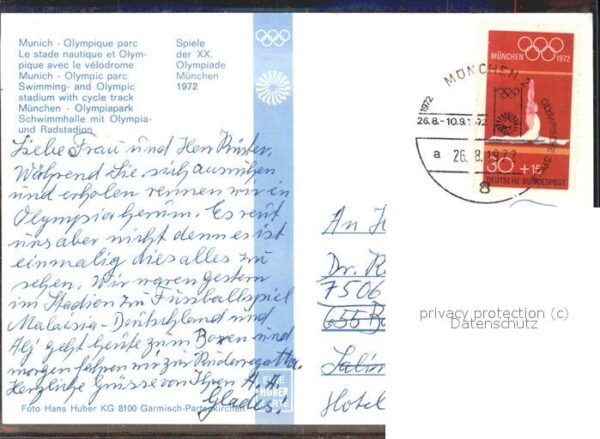 Munich - Olympique parc
Le stade nautique et Olym-
pique avec le vélodrome
Munich - Olympic parc
Swimming- and Olympic
stadium with cycle track
München - Olympiapark
Schwimmhalle mit Olympia-
und Radstadion
Spiele
der XX.
Olympiade
München
1972
Liebe Frau und Herr
Während Sie sich ausruhen
und erholen rennen wir in
Olympia herum. Es reut
uns aber nicht denn es ist
einmalig dies alles zu
sehen. Wir waren gestern
im Stadion zu Fussballspiel
Malaisia - Deutschland und
geht heute zum Boxen und
morgen fahren wir zur Ruderregatta.
Herzliche Grüsse von Ihren A. A.
Foto Hans Huber KG 8100 Garmisch-Partenkirchen
HUBER
KARTE
MÜNCHEN
1972
26.8.-10.9.1972
OLYMPISCHE
a 26.8.1972
8
MÜNCHEN 1972
30 +15
DEUTSCHE BUNDESPOST
An
Dr. R
7506
655
Hotel
privacy protection (c)
Datenschutz